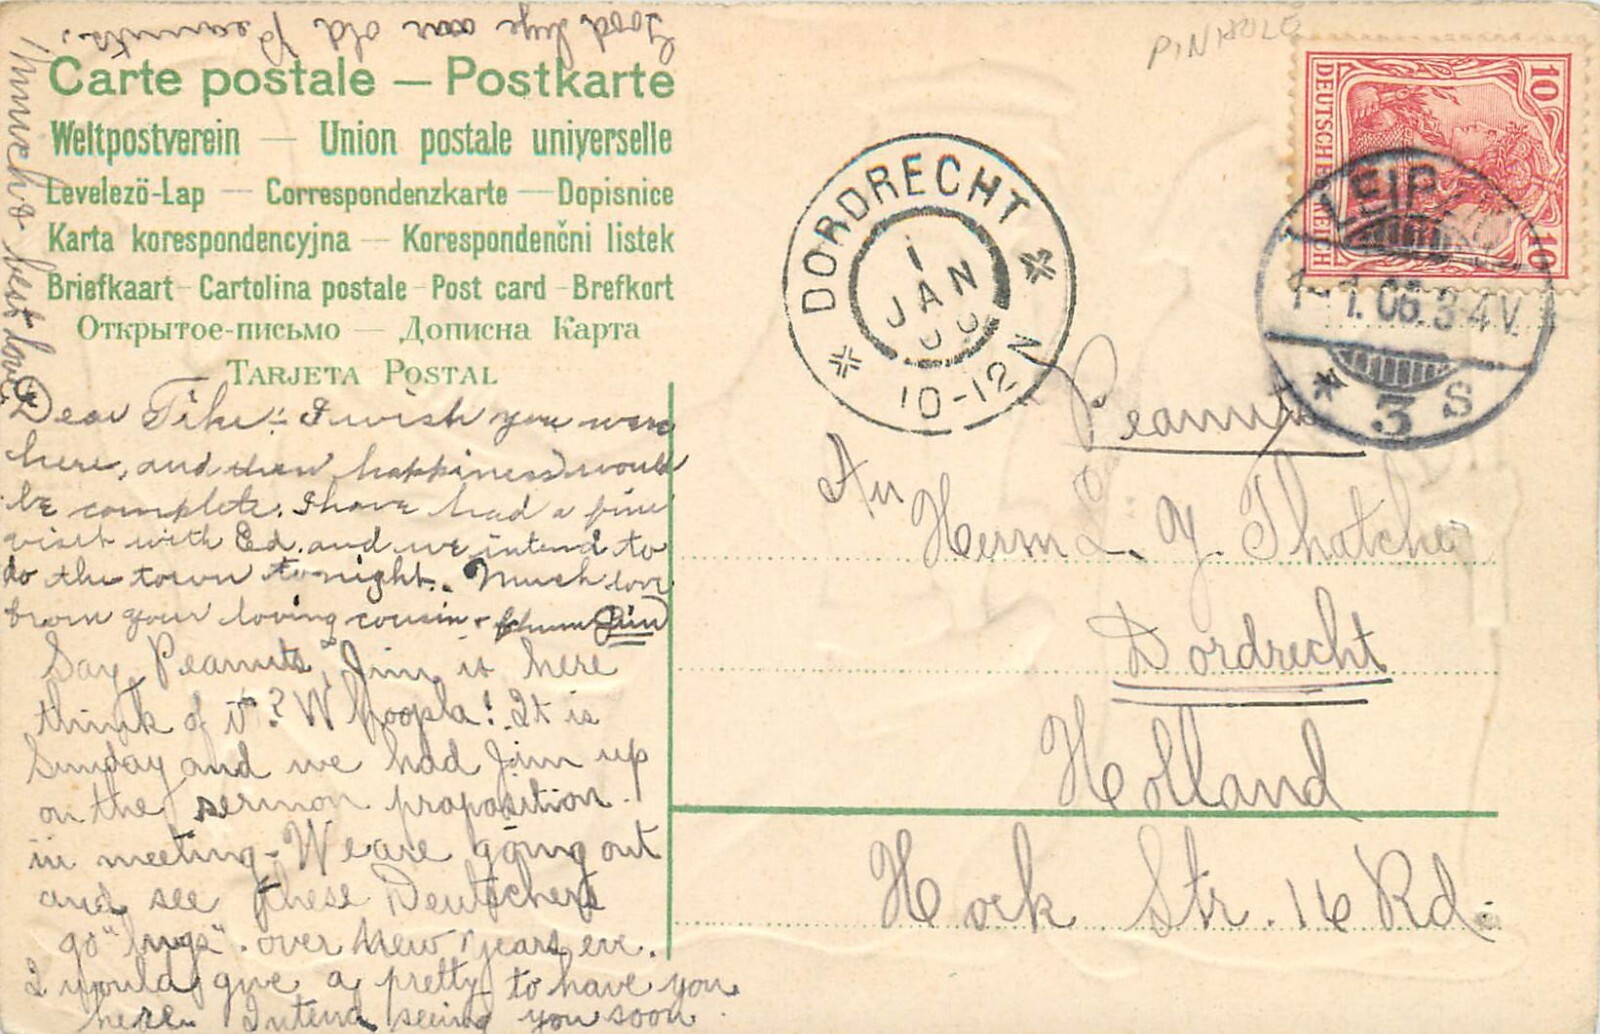 Good bye our old Peanuts.
Carte postale — Postkarte
Weltpostverein — Union postale universelle
Levelezö-Lap — Correspondenzkarte — Dopisnice
Karta korespondencyjna — Korespondenčni listek
Briefkaart - Cartolina postale - Post card - Brefkort
Открытое-письмо — Дописна Карта
TARJETA POSTAL
best love
Dear Tike:- I wish you were
here, and then happiness would
be complete. I have had a fine
visit with Ed. and we intend to
do the town tonight. Much love
from your loving cousin + chum Jim
Say, Peanuts, Jim is here
think of it? Whoopla! It is
Sunday and we had Jim up
on the sermon proposition
in meeting - We are going out
and see these Deutschers
go "bugs" over New Years eve.
I would give a pretty to have you
here. Intend seeing you soon
PINHOLE
10 DEUTSCHES REICH 10
DORDRECHT
1
JAN
10-12 N
LEIPZIG
1-1.06.3-4V.
* 3 S
Peanuts
An
Herrn L. G. Thatcher
Dordrecht
Holland
Hock Str. 16 Rd.